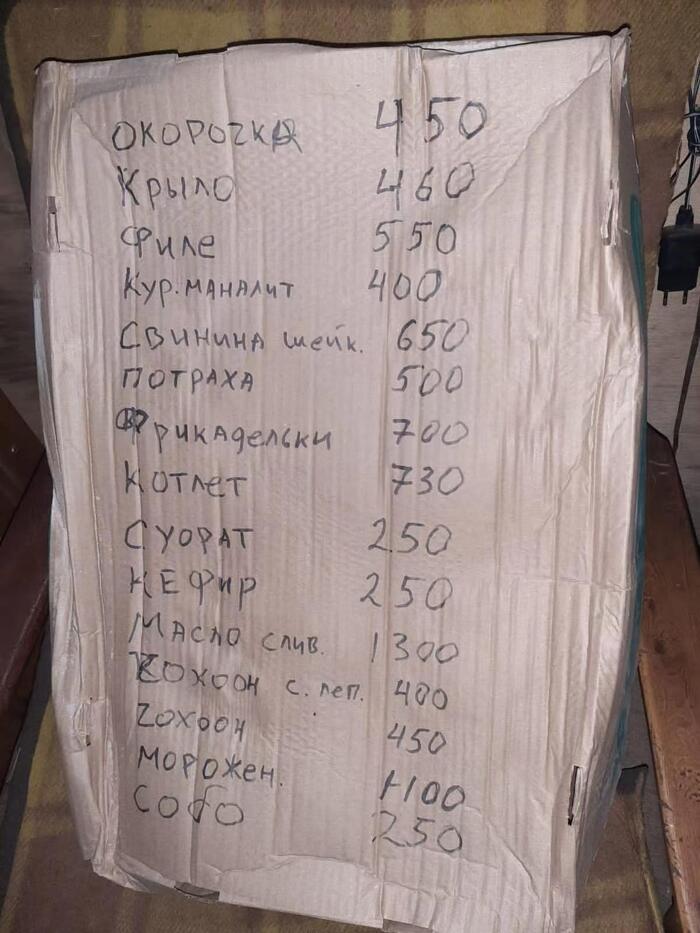 ОКОРОЧКА 450
Крыло 460
Филе 550
Кур.маналит 400
Свинина шейк. 650
Потраха 500
Фрикадельки 700
Котлет 730
Суорат 250
Кефир 250
Масло слив. 1300
Хохоон с. леп. 400
Хохоон 450
Морожен. 1100
Собо 250